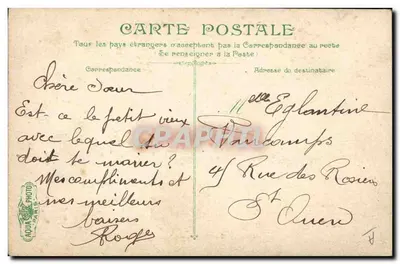 CARTE POSTALE
Tous les pays étrangers n'acceptent pas la Correspondance au recto
(Se renseigner à la Poste)
Correspondance
Adresse du destinataire
Chère Sœur
Est ce le petit vieux
avec lequel tu
doit te marier?
Mes compliments et
mes meilleurs
baisers
Roger
Mlle Eglantine
Vancamps
45 Rue des Rosiers
St Ouen
AQUA PHOTO
PARIS